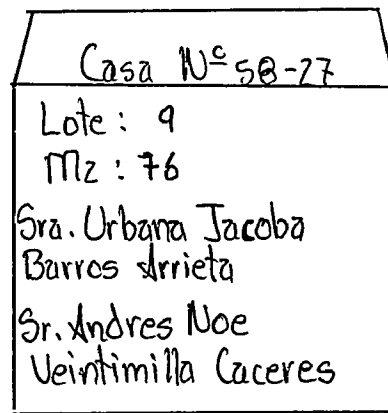 Casa Nº 58-27
Lote: 9
Mz: 76
Sra. Urbana Jacoba
Burros Arrieta
Sr. Andres Noe
Veintimilla Caceres